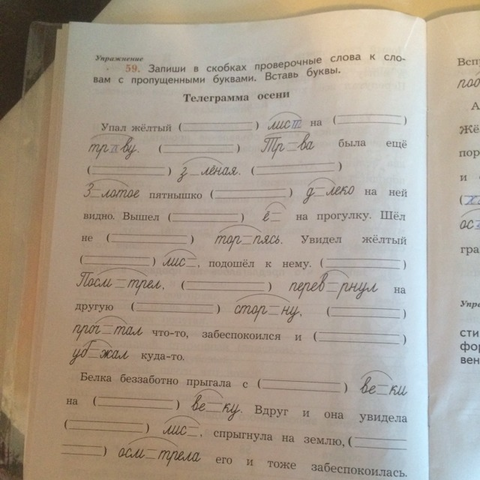 Упражнение
59. Запиши в скобках проверочные слова к сло-
вам с пропущенными буквами. Вставь буквы.
Телеграмма осени
Упал жёлтый (          ) лист на (          )
траву. (          ) Тр_ва была ещё
(          ) з_лёная. (          )
З_лотое пятнышко (          ) д_леко на ней
видно. Вышел (          ) ё_ на прогулку. Шёл
не (          ) тор_пясь. Увидел жёлтый
(          ) лис_, подошёл к нему. (          )
Посм_трел, (          ) перев_рнул на
другую (          ) стор_ну, (          )
проч_тал что-то, забеспокоился и (          )
уб_жал куда-то.
Белка беззаботно прыгала с (          ) ве_ки
на (          ) ве_ку. Вдруг и она увидела
(          ) лис_, спрыгнула на землю, (          
          ) осм_трела его и тоже забеспокоилась.